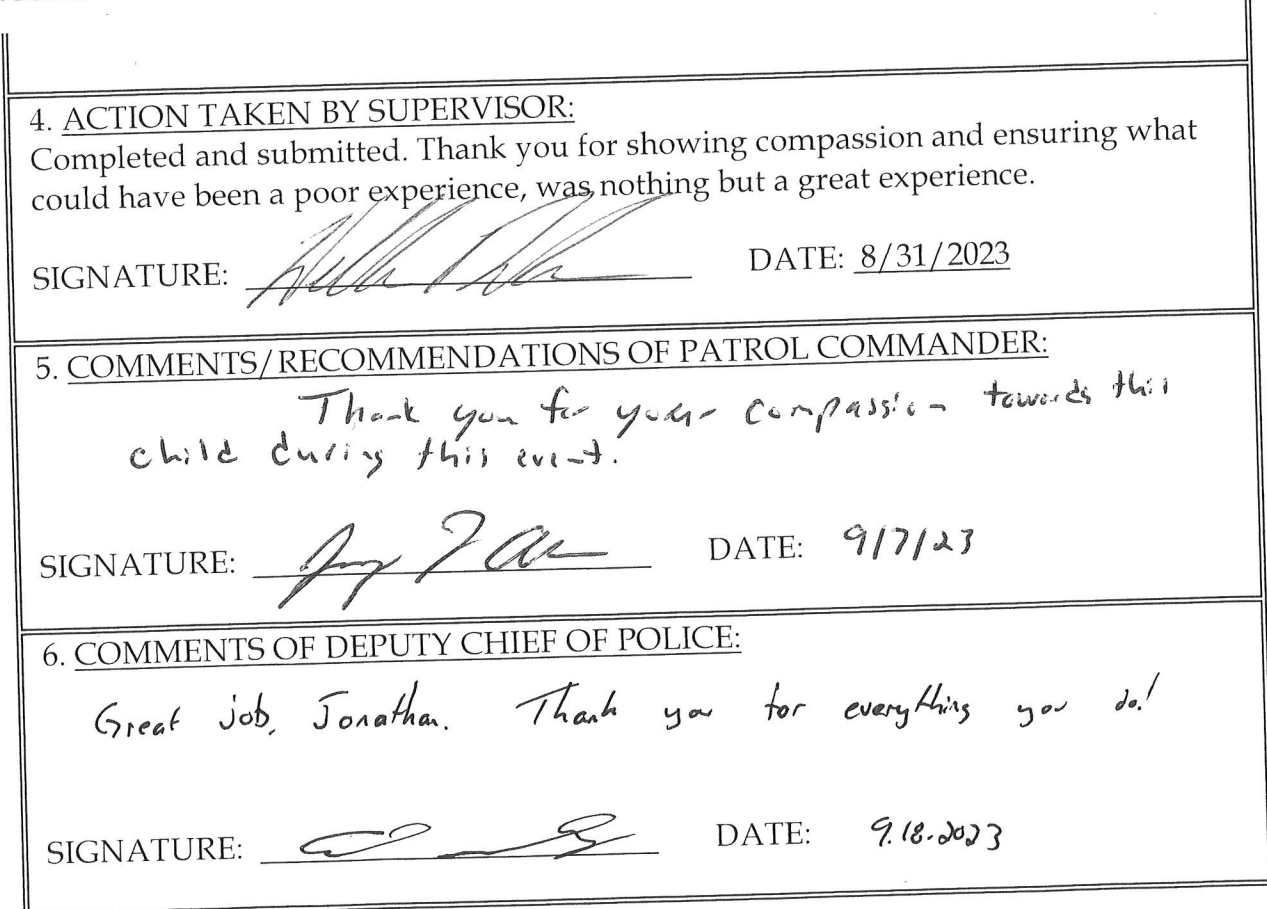 4. ACTION TAKEN BY SUPERVISOR:
Completed and submitted. Thank you for showing compassion and ensuring what
could have been a poor experience, was nothing but a great experience.
SIGNATURE: DATE: 8/31/2023
5. COMMENTS/RECOMMENDATIONS OF PATROL COMMANDER:
Thank you for your compassion towards this
child during this event.
SIGNATURE: DATE: 9/7/23
6. COMMENTS OF DEPUTY CHIEF OF POLICE:
Great job, Jonathan. Thank you for everything you do!
SIGNATURE: DATE: 9.18.2023